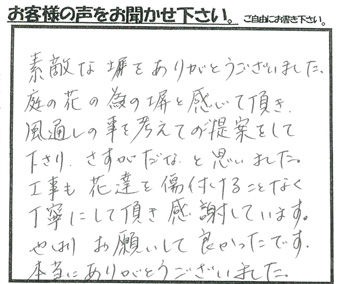 お客様の声をお聞かせ下さい。ご自由にお書き下さい。
素敵な塀をありがとうございました。
庭の花の為の塀と感じて頂き、
風通しの事を考えてのご提案をして
下さり、さすがだな、と思いました。
工事も花達を傷付けることなく
丁寧にして頂き感謝しています。
やはりお願いして良かったです。
本当にありがとうございました。